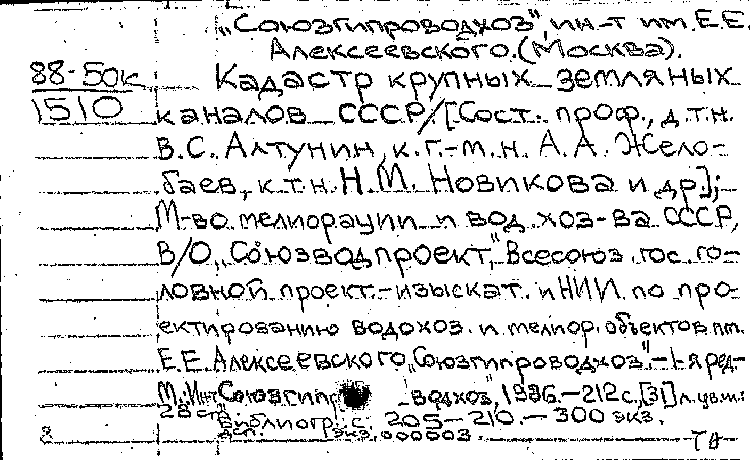 „Союзгипроводхоз", ин-т им. Е.Е.
Алексеевского. (Москва).
88-50к Кадастр крупных земляных
1510 каналов СССР/[Сост. проф., д.т.н.
В.С. Алтунин, к.г.-м.н. А.А. Жело-
баев, к.т.н. Н.М. Новикова и др.];
М-во мелиорации и вод. хоз-ва СССР,
В/О „Союзводпроект", Всесоюз. гос. го-
ловной проект.-изыскат. и НИИ по про-
ектированию водохоз. и мелиор. объектов им.
Е.Е. Алексеевского „Союзгипроводхоз".-1-я ред.-
М. Союзгипроводхоз", 1986.-212 с., [31] л.
28 см
Библиогр.: с. 205-210.- 300 экз.
экз. 000003.